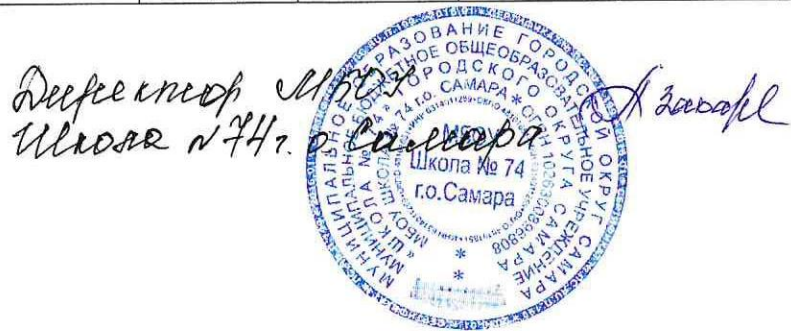 Директор МБОУ
Школа №74 г.о.Самара
МУНИЦИПАЛЬНОЕ ОБРАЗОВАНИЕ ГОРОДСКОЙ ОКРУГ САМАРА
МУНИЦИПАЛЬНОЕ БЮДЖЕТНОЕ ОБЩЕОБРАЗОВАТЕЛЬНОЕ УЧРЕЖДЕНИЕ
«ШКОЛА № 74» ГОРОДСКОГО ОКРУГА САМАРА
МБОУ ШКОЛА № 74 г.о. САМАРА * ОГРН 1026300896808
МБОУ
Школа № 74
г.о.Самара